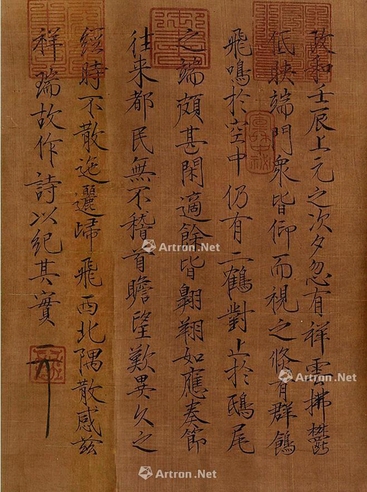 政和壬辰上元之次夕忽有祥雲拂鬱
低映端門衆皆仰而視之倏有群鶴
飛鳴於空中仍有二鶴對止於鴟尾
之端頗甚閑適餘皆翱翔如應奏節
往來都民無不稽首瞻望歎異久之
經時不散迤邐歸飛西北隅散感茲
祥瑞故作詩以紀其實
Artron.Net
Artron.Net
Artron.Net